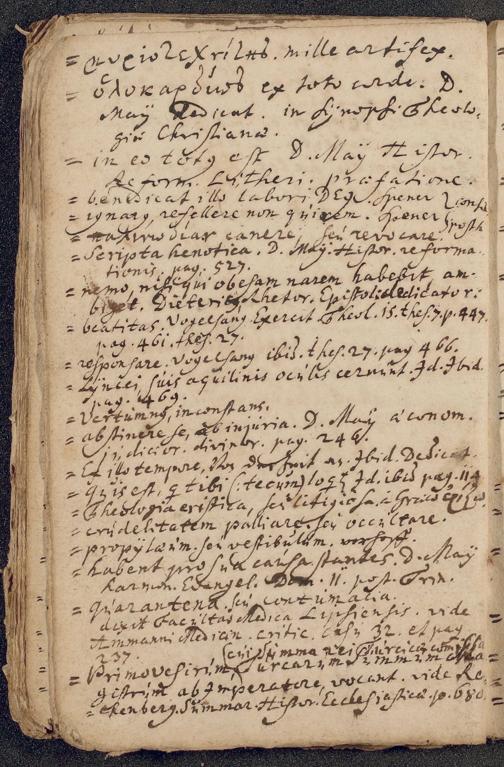 = μυριοτεχνίτης. mille artifex.
= ὁλοκαρδίως ex toto corde. D.
May Dedicat. in Synopsi Theolo-
giæ Christianæ.
= in eo totus est D. May Histor.
Reform. Lutheri. præfatione.
= benedicat illo labori, DEus. Spener
= ignaro, refellere non quirem. Spener
= canere, seu revocare.
= Scripta henotica. D. May. Histor. reforma-
tionis. pag. 527.
= nemo, nisi qui obesam narem habebit am-
biget. Dieteric. Rhetor. Epistol. dedicator:
= beatitas. Vogelsang. Exercit Theol. 15. thes. 7. p. 447.
pag. 461. thes. 27.
= responsare. Vogelsang ibid. thes. 27. pag 466.
= Lyncei, suis aquilinis oculis cernunt. Id. Ibid.
pag. 469.
= Vertumnus, inconstans.
= abstinere se, ab injuria. D. May œconom.
judicior. divinor. pag. 246.
= Ex illo tempore, Ibid. Dedicat.
= Quis est, q tibi (: tecum) Id. ibid pag. 114
= Theologia eristica, seu litigiosa. à Græco
= crudelitatem palliare, seu occultare.
= propylæum. seu vestibulum.
= habent pro sua causa stantes. D. May
harmon. Evangel. Dom. 11. post. Trin.
= Quarantena. seu contumacia.
dixit Facultas Medica Lipsiensis. vide
Ammanni Medicin. critic. casu 32. et pag
237.
= Primovesirium, Turcarum summum
gistrum ab Imperatore vocant. vide Re-
= chenberg. Summar. Histor. Ecclesiasticæ. p. 680.